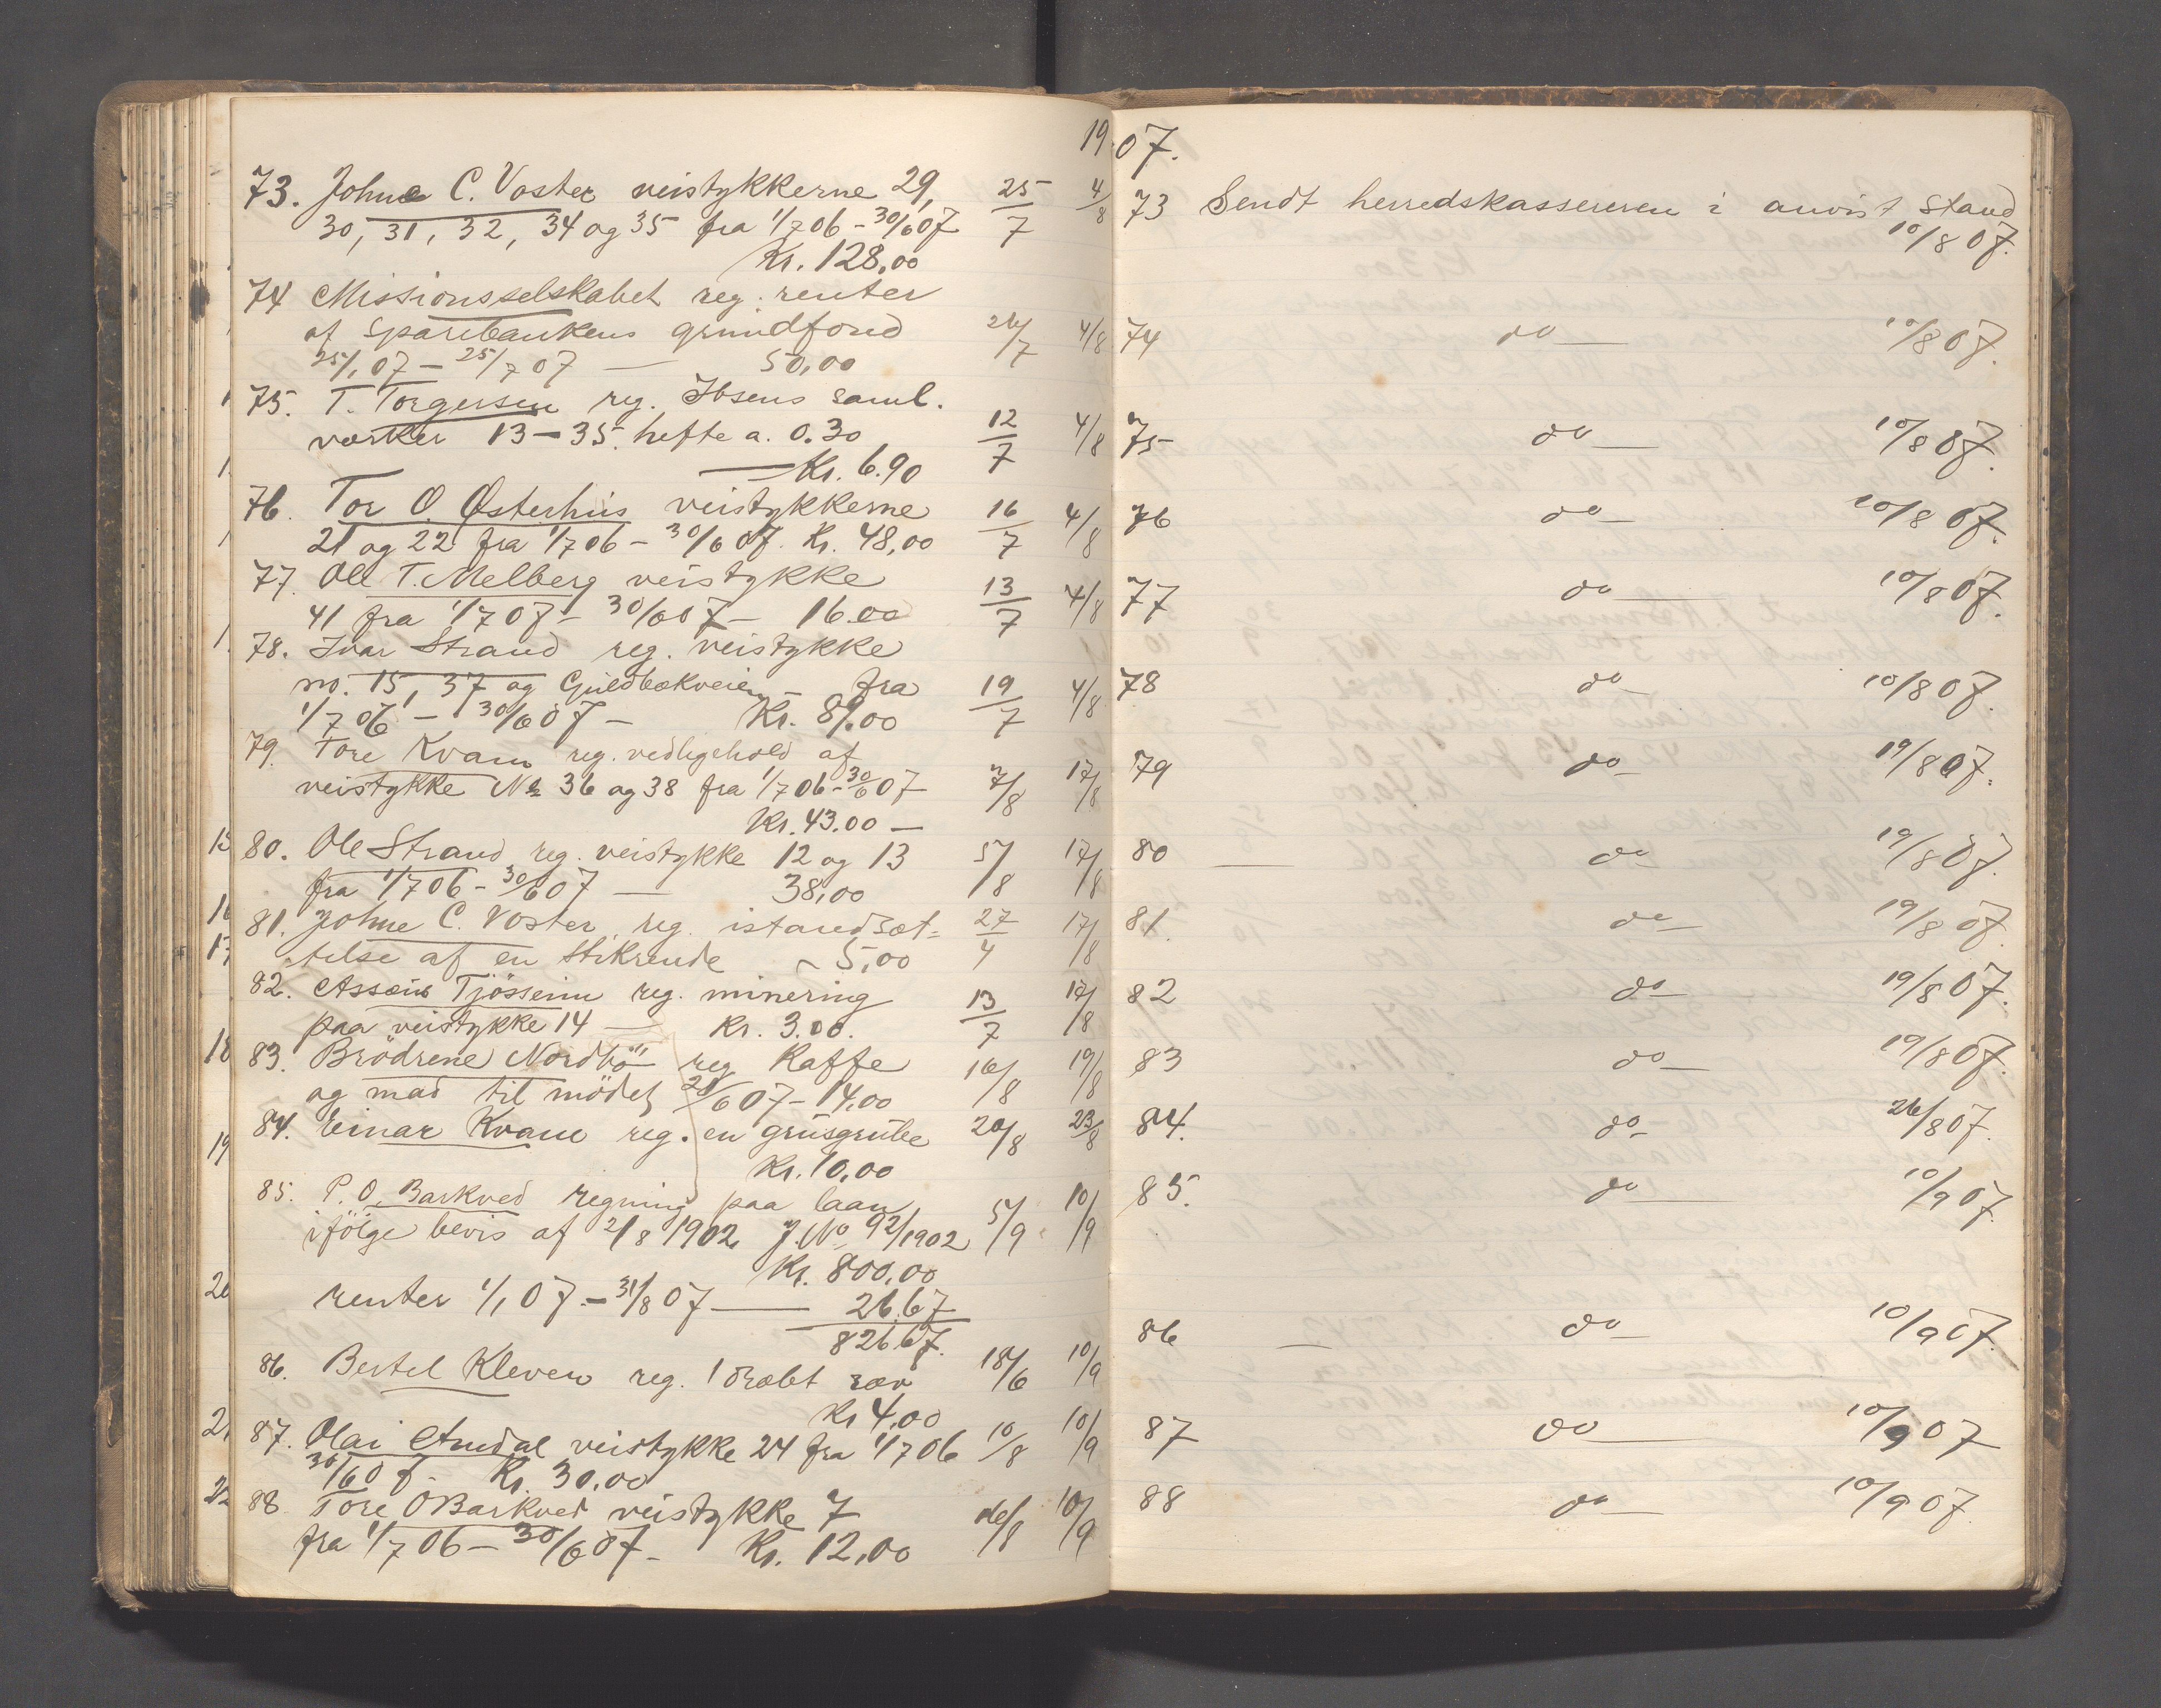 19 07.
73. Johne C. Voster veistykkerne 29, 25/7 4/8
30, 31, 32, 34 og 35 fra 1/7 06 - 30/6 07
Kr. 128,00
74 Missionsselskabet reg. renter
af sparebankens grundfond 26/7 4/8
25/1 07 - 25/7 07 — 50,00
75. T. Torgersen reg. Ibsens saml.
værker 13 - 35. hefte a. 0.30 12/7 4/8
— Kr. 6.90
76. Tor O. Østerhus veistykkerne 16/7 4/8
21 og 22 fra 1/7 06 - 30/6 07. Kr. 48,00
77. Ole T. Melberg veistykke 13/7 4/8
41 fra 1/7 07 - 30/6 07 - 16.00
78. Ivar Strand reg. veistykke
no. 15, 37 og Guldbækveien - fra 19/7 4/8
1/7 06 - 30/6 07 - Kr. 89.00
79. Tore Kvam reg. vedligehold af
veistykke No 36 og 38 fra 1/7 06 - 30/6 07 7/8 17/8
Kr. 43.00 —
80. Ole Strand reg. veistykke 12 og 13 5/8 17/8
fra 1/7 06 - 30/6 07 — 38,00
81. Johne C. Voster reg. istandsæt= 27/4 17/8
telse af en stikrende - 5,00
82. Assæus Tjössem reg. minering 13/7 17/8
paa veistykke 14 — Kr. 3.00.
83. Brödrene Nordbö reg Kaffe 16/8 19/8
og mad til mödet 28/6 07 - 14.00
84. Einar Kvam reg. en grusgrube 20/8 23/8
Kr. 10,00
85. P. O. Barkved regning paa laan 5/9 10/9
ifölge bevis af 2/8 1902 J. No 92/1902
Kr. 800,00
renter 1/1 07 - 31/8 07 — 26.67
826.67.
86. Bertel Kleven reg. 1 dræbt ræv 18/6 10/9
Kr 4,00
87. Olai Amdal veistykke 24 fra 1/7 06 10/8 10/9
30/6 07 - Kr. 30.00
88. Tore O Barkved veistykke 7 10/9
fra 1/7 06 - 30/6 07 - Kr. 12,00
73 Sendt herredskassereren i anvist stand
10/8 07.
74 do — 10/8 07.
75 do — 10/8 07.
76 do — 10/8 07.
77 do — 10/8 07.
78 do — 10/8 07.
79 do — 19/8 07.
80 — do — 19/8 07.
81. do — 19/8 07.
82 do — 19/8 07.
83 do — 19/8 07.
84. do - 26/8 07.
85. do — 10/9 07
86 — do — 10/9 07.
87 do — 10/9 07
88 do — 10/9 07.